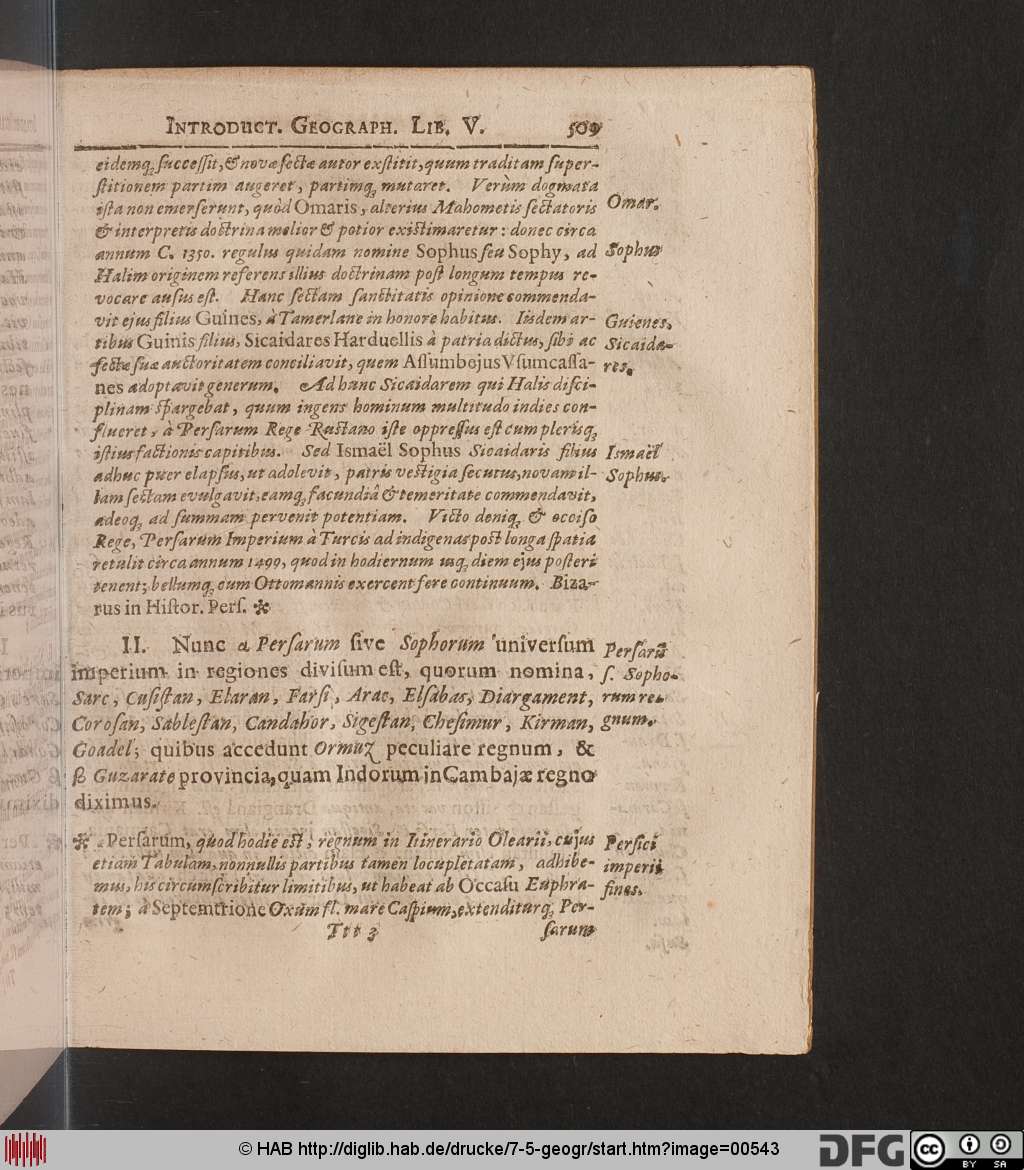 INTRODUCT. GEOGRAPH. LIB. V. 509
eidemq; successit, & novæ sectæ autor exstitit, quum traditam super-
stitionem partim augeret, partimq; mutaret. Verùm dogmata
ista non emerserunt, quòd Omaris, alterius Mahometis sectatoris
& interpretis doctrina melior & potior existimaretur: donec circa
annum C. 1350. regulus quidam nomine Sophus seu Sophy, ad
Halim originem referens illius doctrinam post longum tempus re-
vocare ausus est. Hanc sectam sanctitatis opinione commenda-
vit ejus filius Guines, à Tamerlane in honore habitus. Iisdem ar-
tibus Guinis filius, Sicaidares Harduellis à patria dictus, sibi ac
sectæ suæ auctoritatem conciliavit, quem Assumbejus Vsumcassa-
nes adoptavit generum. Ad hunc Sicaidarem qui Halis disci-
plinam spargebat, quum ingens hominum multitudo indies con-
flueret, à Persarum Rege Rustano iste oppressus est cum plerisq;
istius factionis capitibus. Sed Ismaël Sophus Sicaidaris filius
adhuc puer elapsus, ut adolevit, patris vestigia secutus, novam il-
lam sectam evulgavit, eamq; facundiâ & temeritate commendavit,
adeoq; ad summam pervenit potentiam. Victo deniq; & occiso
Rege, Persarum Imperium à Turcis ad indigenas post longa spatia
retulit circa annum 1499, quod in hodiernum usq; diem ejus posteri
tenent; bellumq; cum Ottomannis exercent fere continuum. Biza-
rus in Histor. Pers. ✻
II. Nunc a Persarum sive Sophorum universum
imperium in regiones divisum est, quorum nomina,
Sarc, Cusistan, Elaran, Farsi, Arac, Elsabas, Diargament,
Corosan, Sablestan, Candahor, Sigestan, Chesimur, Kirman,
Goadel; quibus accedunt Ormuz peculiare regnum, &
ß Guzarate provincia, quam Indorum in Cambajæ regno
diximus.
✻ a Persarum, quod hodie est, regnum in Itinerario Olearii, cujus
etiam Tabulam, nonnullis partibus tamen locupletatam, adhibe-
mus, his circumscribitur limitibus, ut habeat ab Occasu Euphra-
tem; à Septemtrione Oxum fl. mare Caspium, extenditurq; Per-
Ttt 3 sarum
Omar.
Sophus
Guienes,
Sicaida-
res.
Ismaël
Sophus.
Persarũ
s. Sopho-
rum re-
gnum.
Persici
imperii
fines.
© HAB http://diglib.hab.de/drucke/7-5-geogr/start.htm?image=00543
DFG
cc BY SA